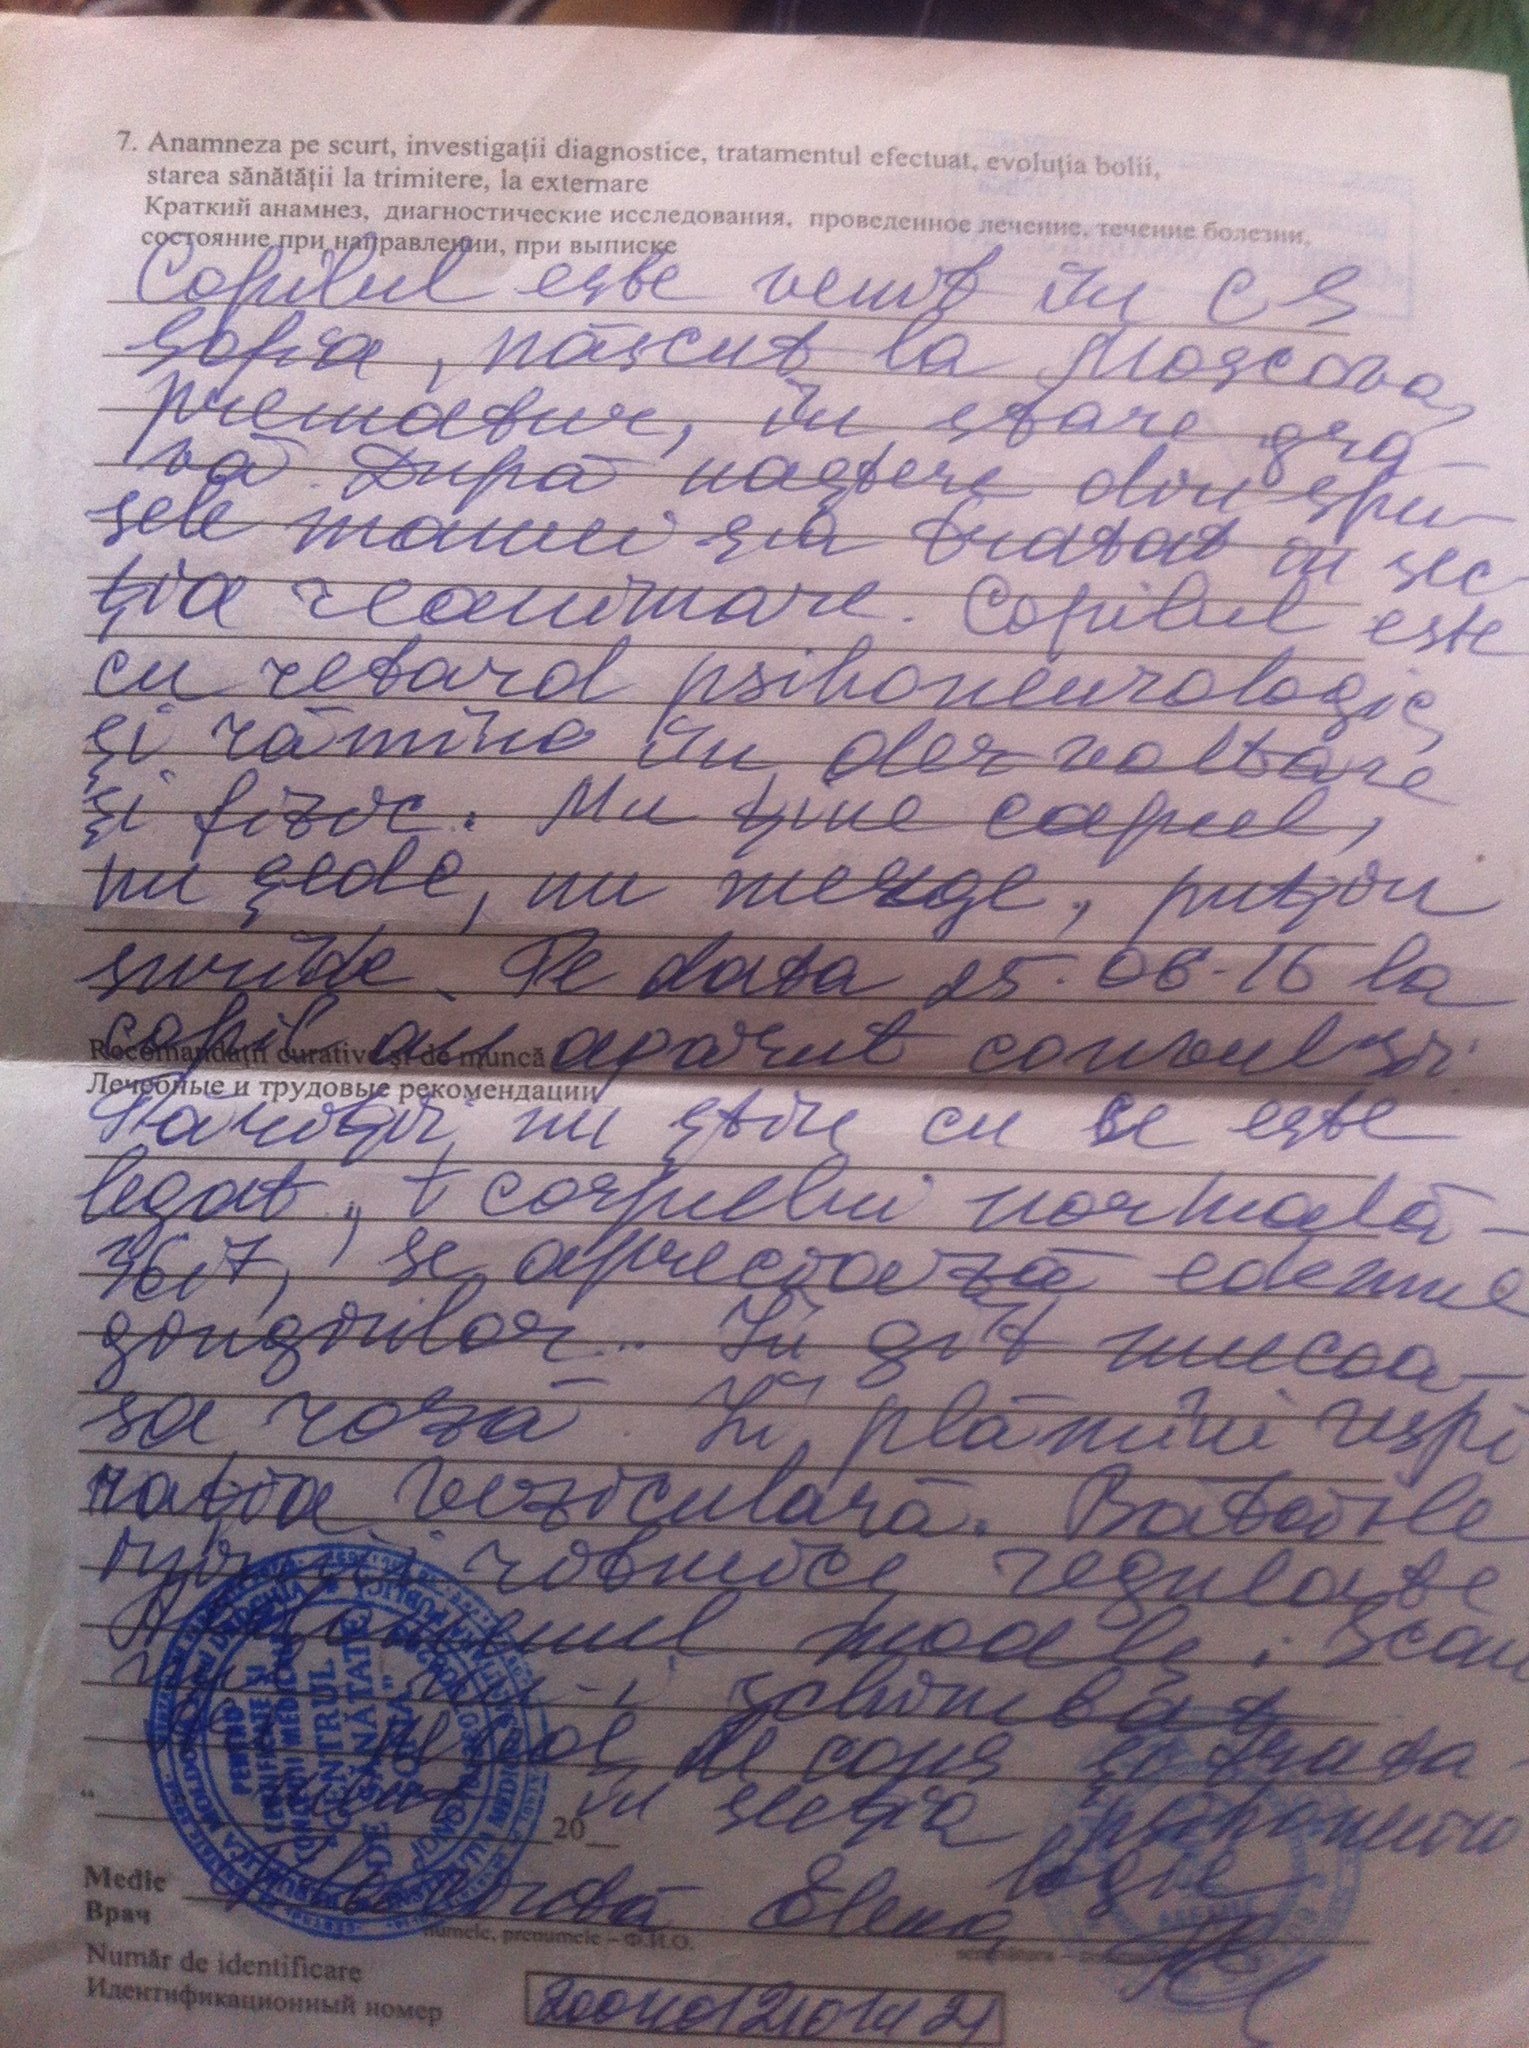 7. Anamneza pe scurt, investigații diagnostice, tratamentul efectuat, evoluția bolii,
starea sănătății la trimitere, la externare
Краткий анамнез, диагностические исследования, проведенное лечение, течение болезни,
состояние при направлении, при выписке
Copilul este venit în CS
Sofia, născut la Moscova,
prematur, în stare gra-
vă. După naștere din spu-
sele mamei s-a tratat în sec-
ția reanimare. Copilul este
cu retard psihoneurologic,
și rămîne în dezvoltare
și fizic. Nu ține capul,
nu șede, nu merge, puțin
surîde. Pe data 25.06.16 la
copil au apărut convulsii.
Recomandații curative și de muncă
Лечебные и трудовые рекомендации
Părinții nu știu cu se este
legat, t corpului normală -
36,7, se apreciază edemme
gingiilor.. În gît mucoa-
sa roză. În plămîni respi
rația veziculară. Bătăile
ritmice, regulate
Abdomenul moale. Scau
nul nu-i schimbat
de cons și trata-
ment în secția psihoneuro
logie
20
Medic
Врач
Elena
numele, prenumele – Ф.И.О.
Număr de identificare
Идентификационный номер
PENTRU
CERTIFICATE ȘI
CONCEDII MEDICALE
CENTRUL
DE SĂNĂTATE
"SOFIA"